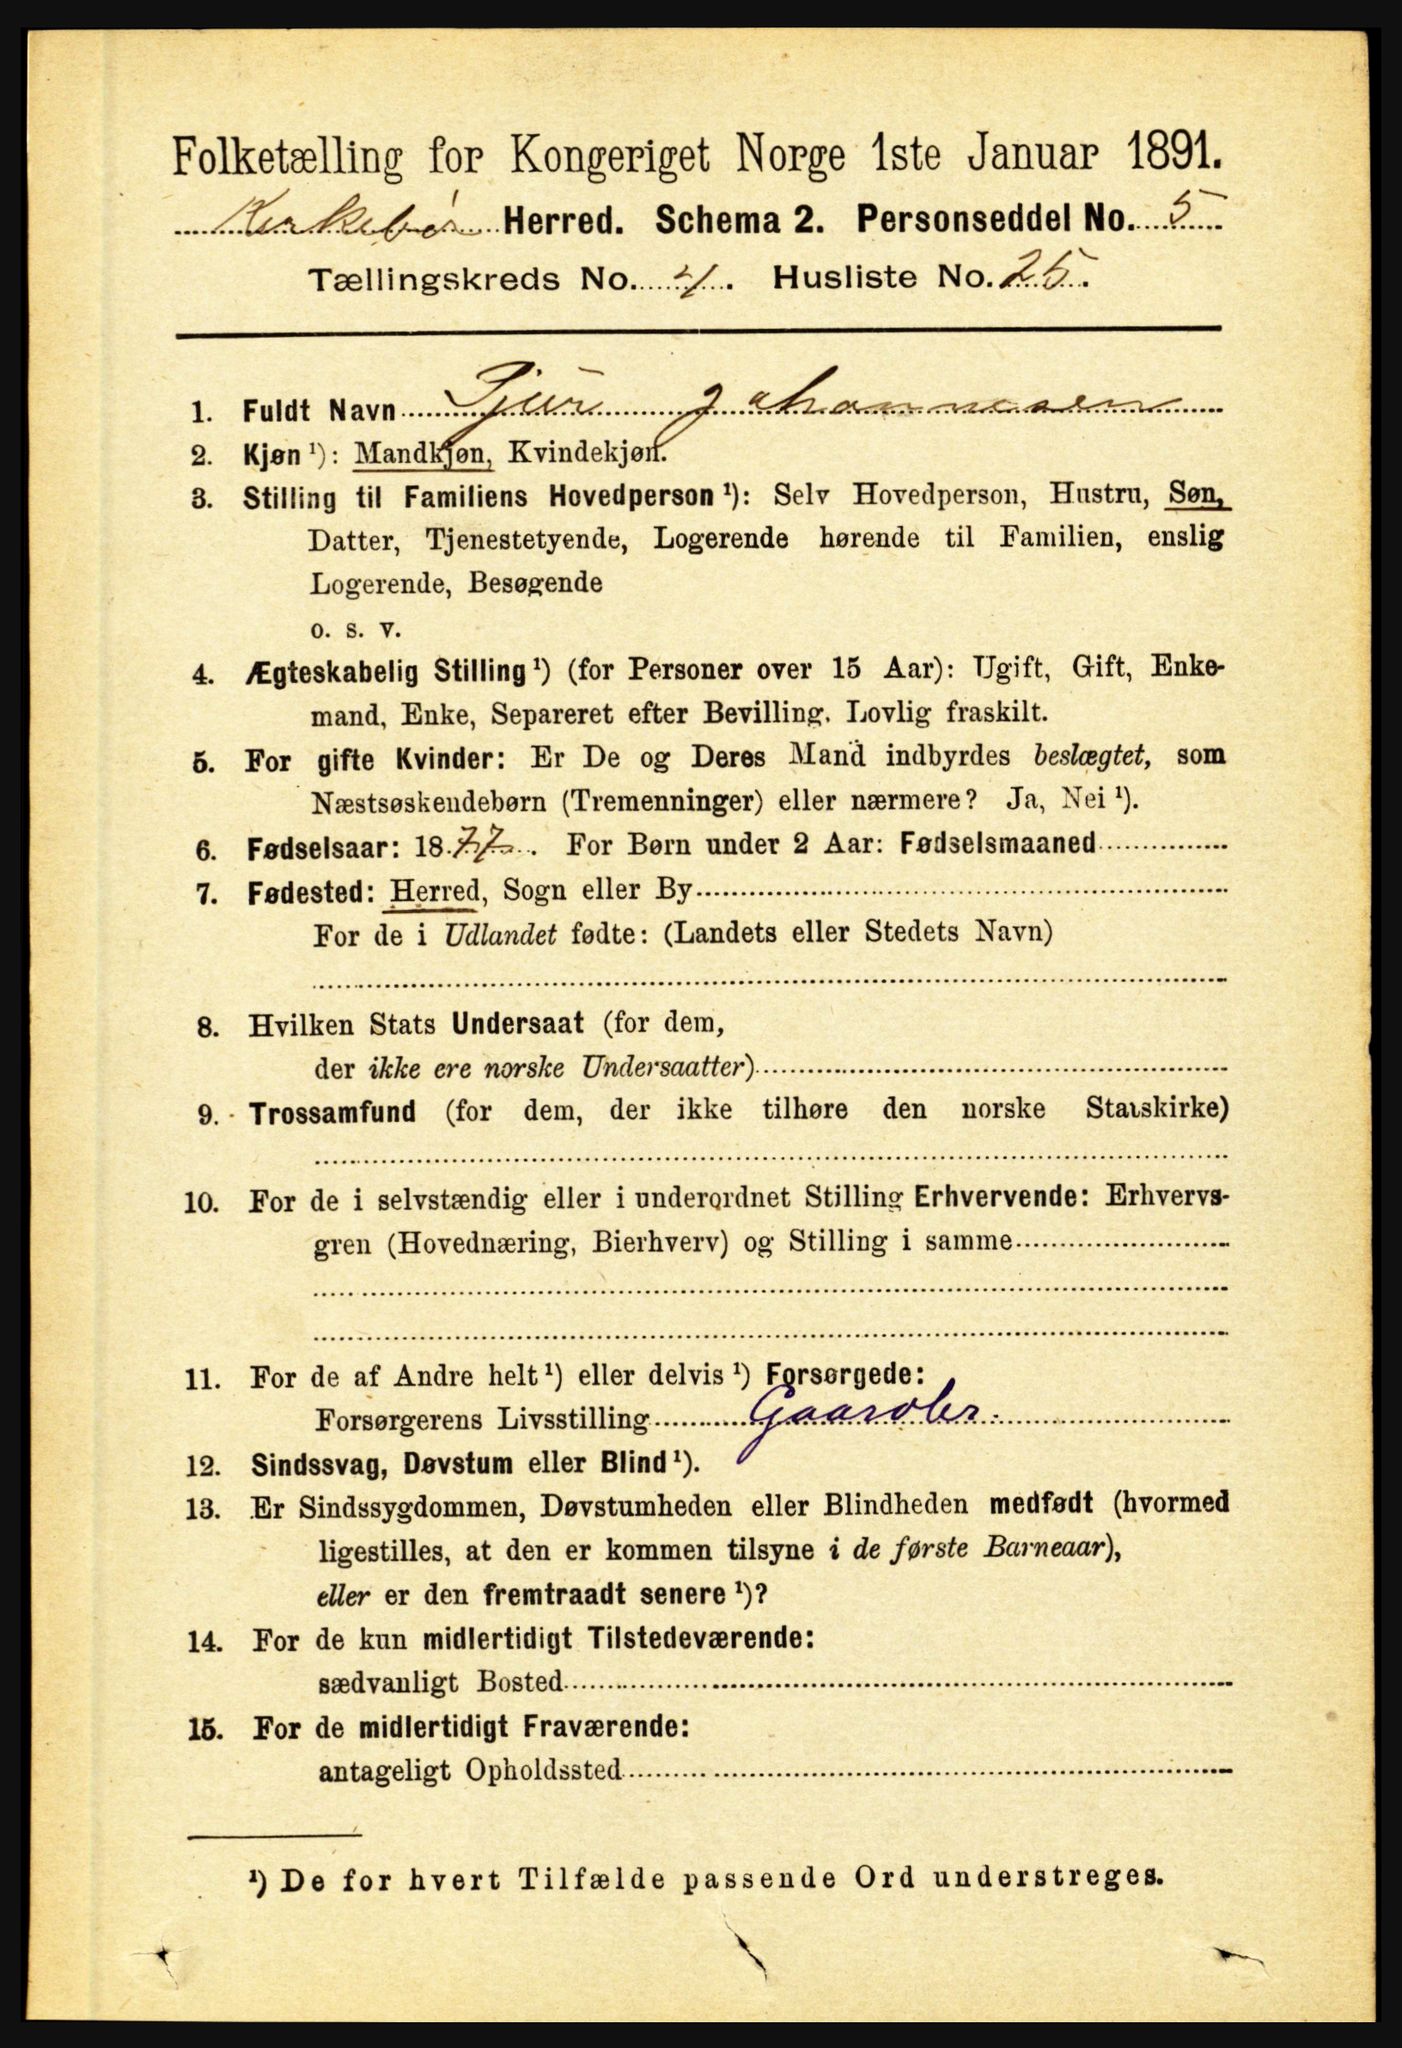 Folketælling for Kongeriget Norge 1ste Januar 1891.
Kirkebø Herred. Schema 2. Personseddel No. 5
Tællingskreds No. 4. Husliste No. 25.
1. Fuldt Navn Johannesen
2. Kjøn ¹): Mandkjøn, Kvindekjøn.
3. Stilling til Familiens Hovedperson ¹): Selv Hovedperson, Hustru, Søn,
Datter, Tjenestetyende, Logerende hørende til Familien, enslig
Logerende, Besøgende
o. s. v.
4. Ægteskabelig Stilling ¹) (for Personer over 15 Aar): Ugift, Gift, Enke-
mand, Enke, Separeret efter Bevilling. Lovlig fraskilt.
5. For gifte Kvinder: Er De og Deres Mand indbyrdes beslægtet, som
Næstsøskendebørn (Tremenninger) eller nærmere? Ja, Nei ¹).
6. Fødselsaar: 1877. For Børn under 2 Aar: Fødselsmaaned
7. Fødested: Herred, Sogn eller By
For de i Udlandet fødte: (Landets eller Stedets Navn)
8. Hvilken Stats Undersaat (for dem,
der ikke ere norske Undersaatter)
9. Trossamfund (for dem, der ikke tilhøre den norske Statskirke)
10. For de i selvstændig eller i underordnet Stilling Erhvervende: Erhvervs-
gren (Hovednæring, Bierhverv) og Stilling i samme
11. For de af Andre helt ¹) eller delvis ¹) Forsørgede:
Forsørgerens Livsstilling Gaardbr.
12. Sindssvag, Døvstum eller Blind ¹).
13. Er Sindssygdommen, Døvstumheden eller Blindheden medfødt (hvormed
ligestilles, at den er kommen tilsyne i de første Barneaar),
eller er den fremtraadt senere ¹)?
14. For de kun midlertidigt Tilstedeværende:
sædvanligt Bosted
15. For de midlertidigt Fraværende:
antageligt Opholdssted
¹) De for hvert Tilfælde passende Ord understreges.